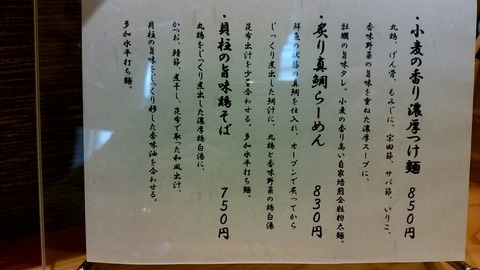 ・小麦の香り濃厚つけ麺　850円
丸鶏、げん骨、もみじに、宗田節、サバ節、いりこ、
香味野菜の旨味を重ねた濃厚スープに、
牡蠣の旨味タレ。小麦の香り高い自家焙煎全粒粉太麺。
・炙り真鯛らーめん　830円
鮮魚の状態の真鯛を仕入れ、オーブンで炙ってから
じっくり煮出した鯛汁に、丸鶏と香味野菜の鶏白湯
昆布出汁を少々合わせる。多加水平打ち麺。
・貝柱の旨味鶏そば　750円
丸鶏をじっくり煮出した濃厚鶏白湯に、
かつお、鯖節、煮干し、昆布で取った和風出汁、
貝柱の旨味をじっくり移した香味油を合わせる。
多加水平打ち麺。